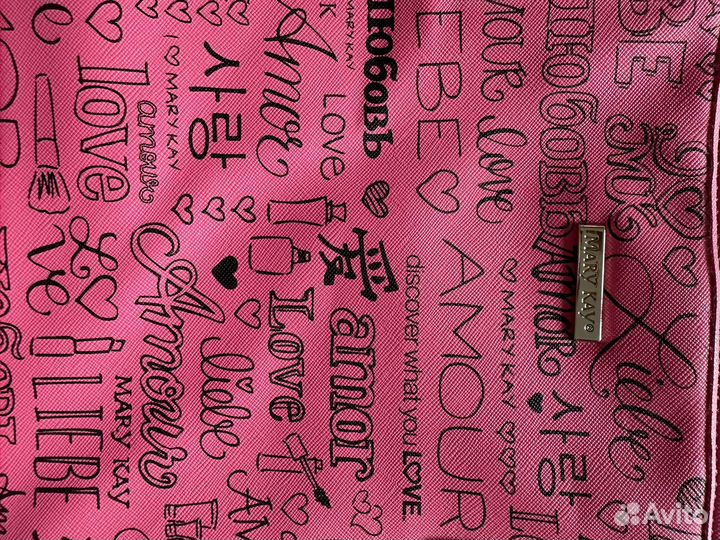 BE
Liebe
MARY KAY®
Любовь AMOR 사랑
OUR love ♡ MARY KAY
EBE ♡ AMOUR
Любовь
discover what you LOVE
MARY KAY
LOVE 爱 amor
Amor Love
사랑 Liebe
I ♡ MARY KAY
amour Amour
love MARY KAY
ve LIEBE
Avito